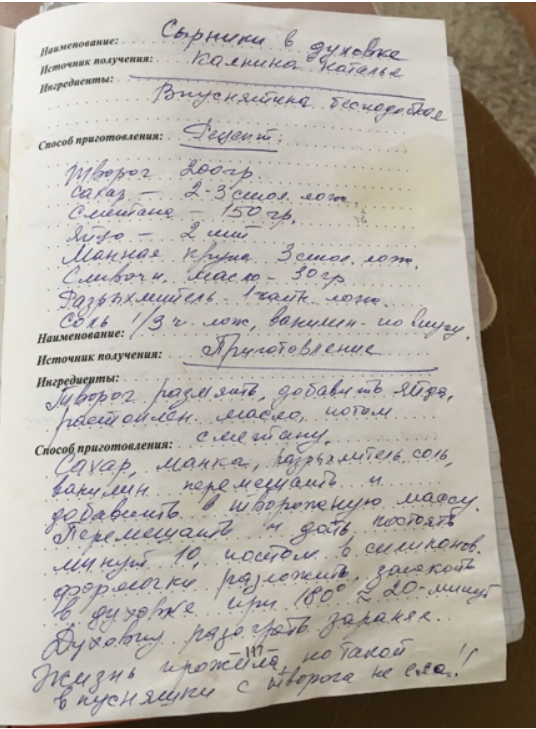 Наименование: Сырники в духовке
Источник получения: Калинина Наталья
Ингредиенты:
Вкуснятина бесподобная
Способ приготовления: Рецепт:
Творог 200гр
Сахар – 2-3 стол. лож.
Сметана – 150 гр.
Яйцо – 2 шт
Манная крупа 3 стол. лож.
Сливочн. масло – 30 гр
Разрыхлитель 1 чайн. лож.
Соль 1/3 ч. лож, ванилин по вкусу.
Наименование:
Источник получения: Приготовление
Ингредиенты:
Творог размять, добавить яйца,
растоплен. масло, потом
Способ приготовления: сметану.
Сахар, манка, разрыхлитель соль,
ванилин перемешать и
добавить в творожную массу.
Перемешать и дать постоять
минут 10, потом в силиконов.
формочки разложить, запекать
в духовке при 180° ≈ 20-минут
Духовку разогреть заранее.
– 117 –
Жизнь прожила, но такой
вкусняшки с творога не ела!!